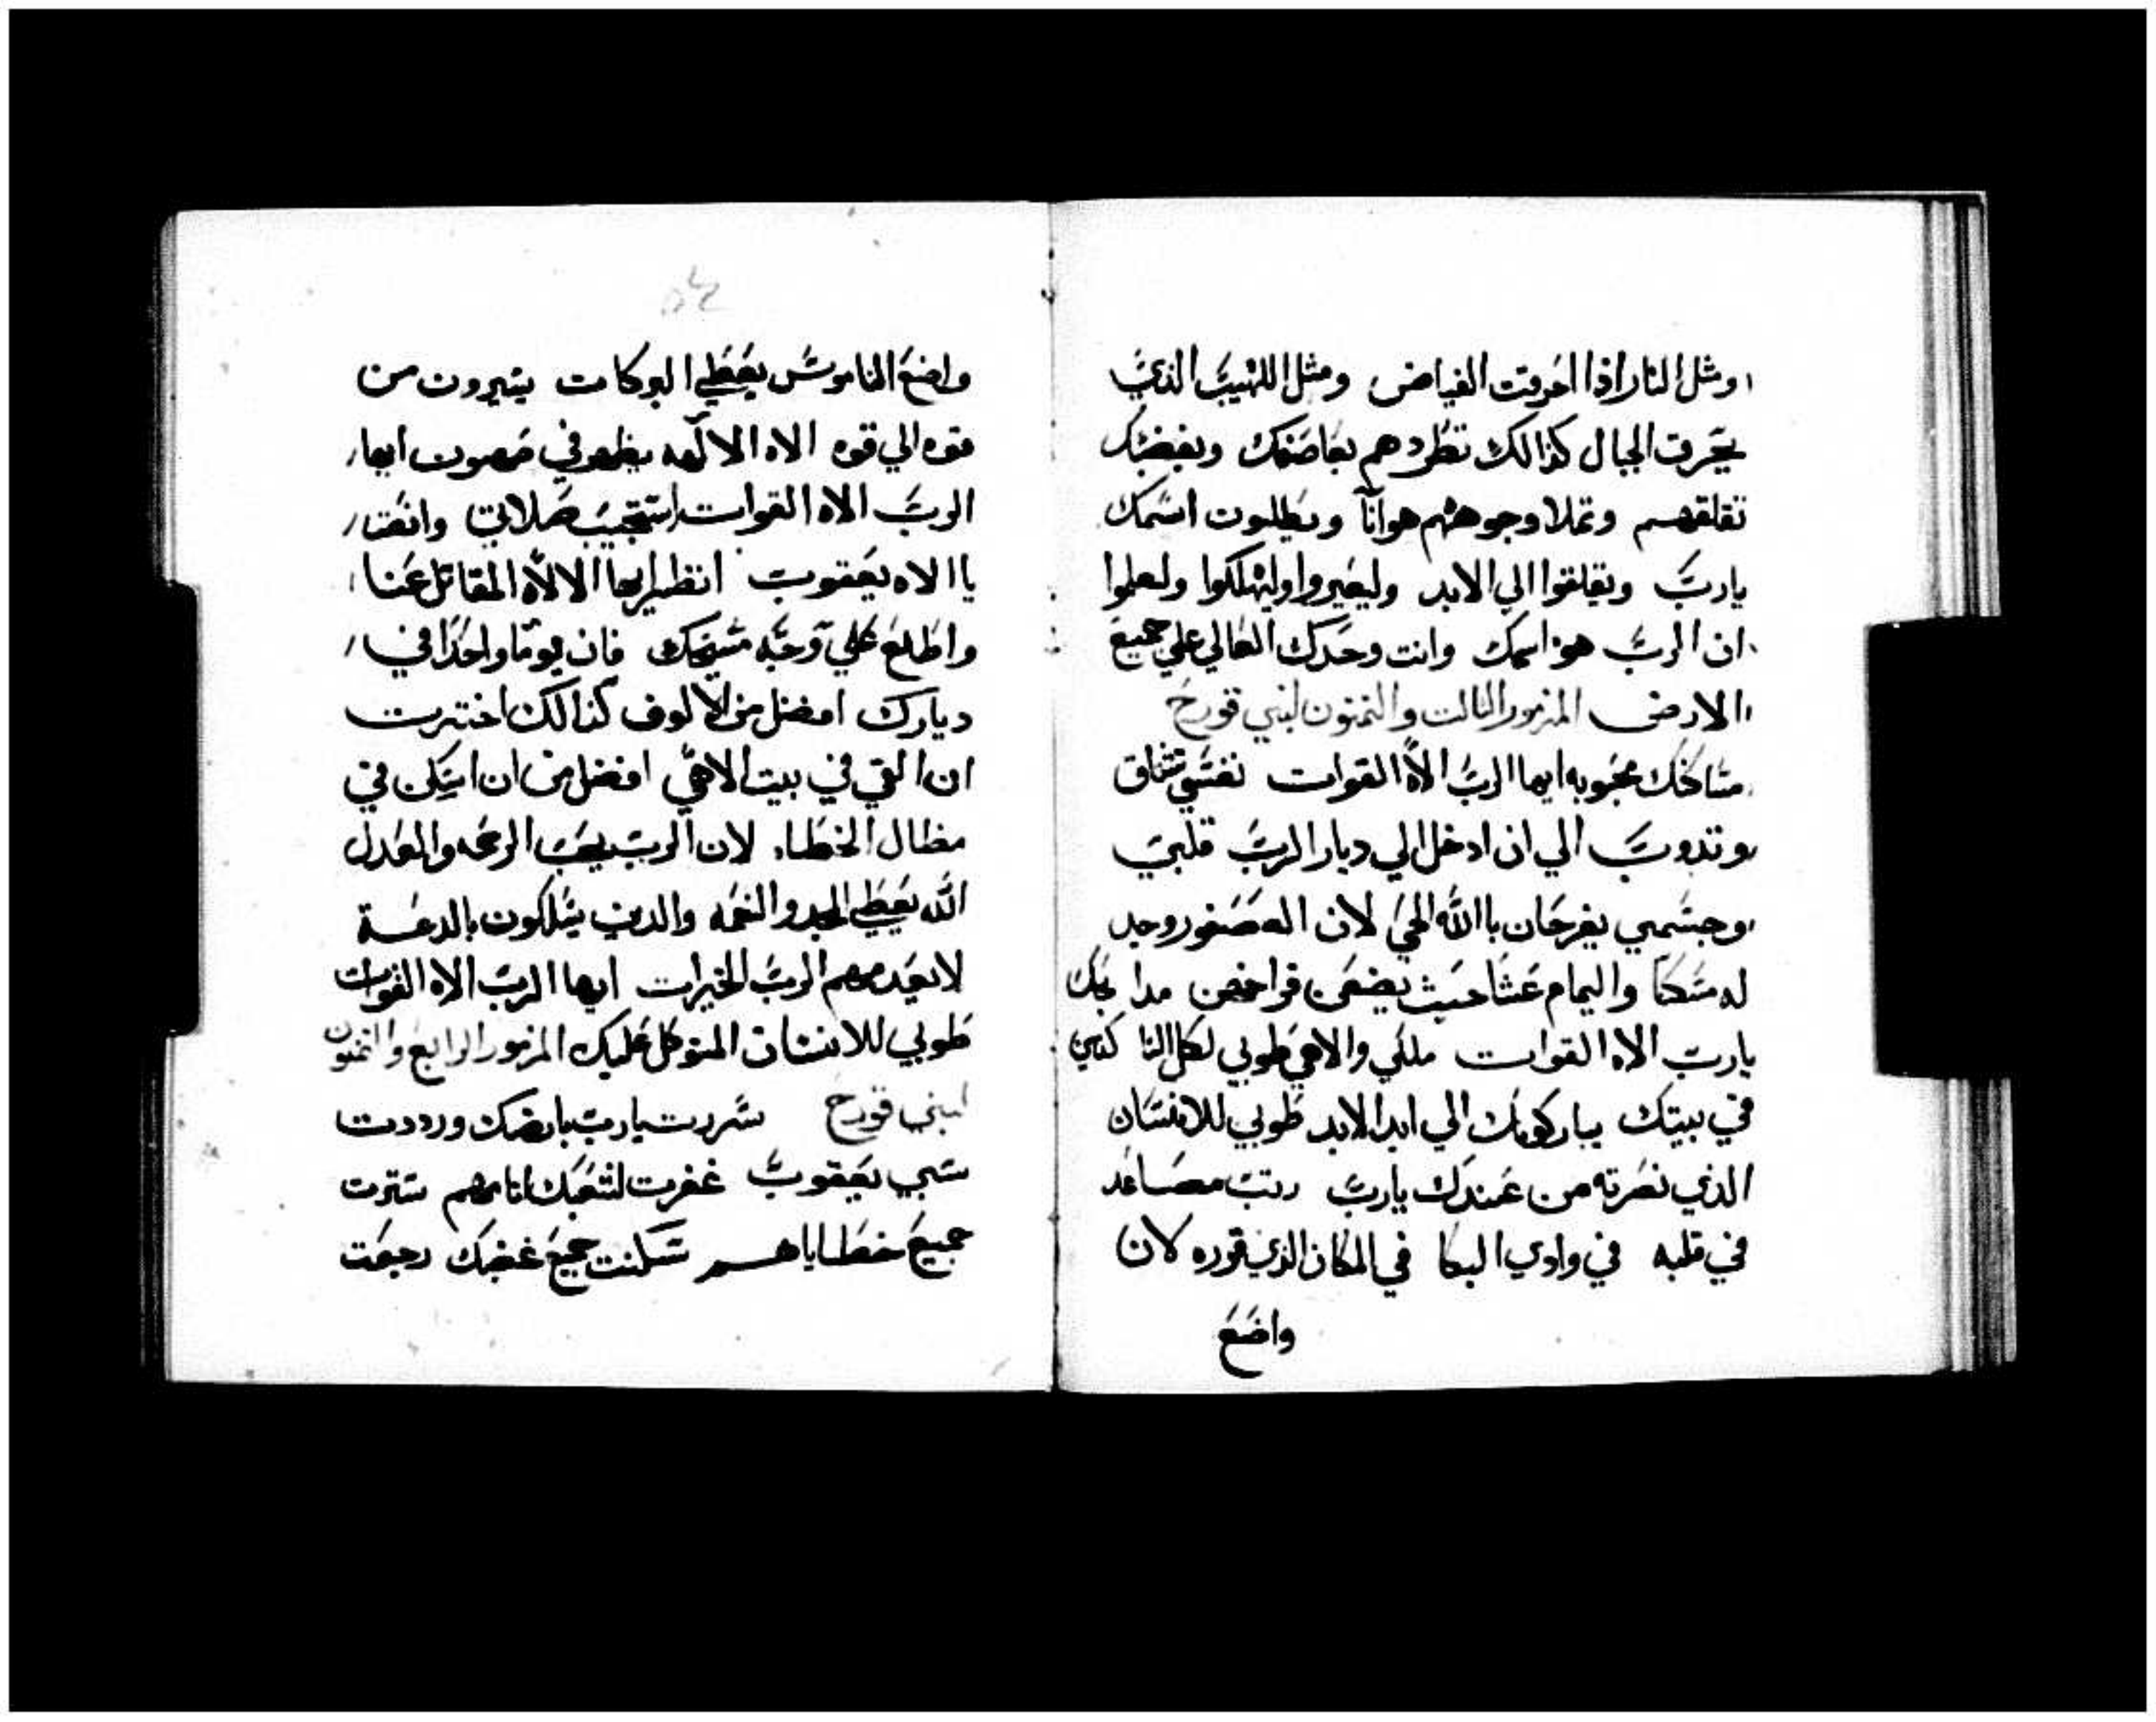 ومثل النار اذا احرقت الغياض ومثل اللهيب الذي
يحرق الجبال كذالك تطردهم بعاصفك وبغضبك
تقلقهم وتملا وجوههم هوانًا ويطلبون اسمك
يارب ويقلقوا الي الابد وليخيروا وليهلكوا وليعلموا
ان الرب هو اسمك وانت وحدك العالي علي جميع
الارض المزمور التالت والثمنون لبني قورح
مساكنك محبوبه ايها الرب الاه القوات نفسي تشتاق
وتدوب الي ان ادخل الي ديار الرب قلبي
وجسمي يفرحان باالله الحي لان العصفور وجد
له مسكنًا واليمام عشا حيث يضعن فراخهن مدابحك
يارب الاه القوات ملكي والاهي طوبي لكل الساكنين
في بيتك يباركونك الي ابد الابد طوبي للانسان
الذي نصرته من عندك يارب رتب مصاعد
في قلبه في وادي البكا في المكان الذي قرره لان
واضع
واضع الناموس يعطي البركات يسيرون من
قوه الي قوه الاه الالهه يظهر في صهيون ايها
الرب الاه القوات استجيب صلاتي وانصت
ياالاه يعقوب انظر ايها الالاه المقاتل عنا
واطلع علي وجه مسيحك فان يومًا واحدًا في
ديارك افضل من الالوف كذالك اخترت
ان القي في بيت الاهي افضل من ان اسكن في
مظال الخطاه لان الرب يحب الرحمه والعدل
الله يعطي المجد والنعمه والدين يسلكون بالدعة
لايعدمهم الرب الخيرات ايها الرب الاه القوات
طوبي للانسان المتوكل عليك المزمور الرابع والثمنون
لبني قورح سررت يارب بارضك ورددت
سبي يعقوب غفرت لشعبك اتامهم سترت
جميع خطاياهم سكنت جميع غضبك رجعت